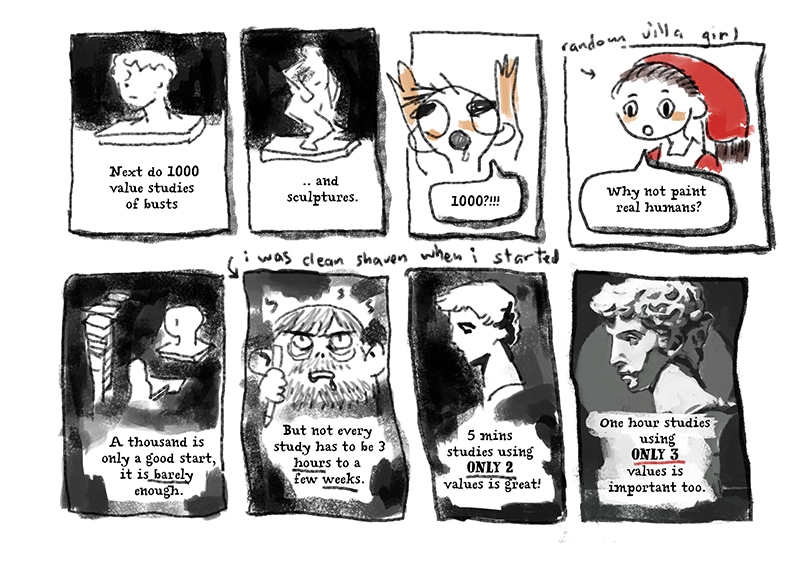 Next do 1000
value studies
of busts
.. and
sculptures.
1000?!!!
random villa girl
Why not paint
real humans?
A thousand is
only a good start,
it is barely
enough.
i was clean shaven when i started
But not every
study has to be 3
hours to a
few weeks.
5 mins
studies using
ONLY 2
values is great!
One hour studies
using
ONLY 3
values is
important too.